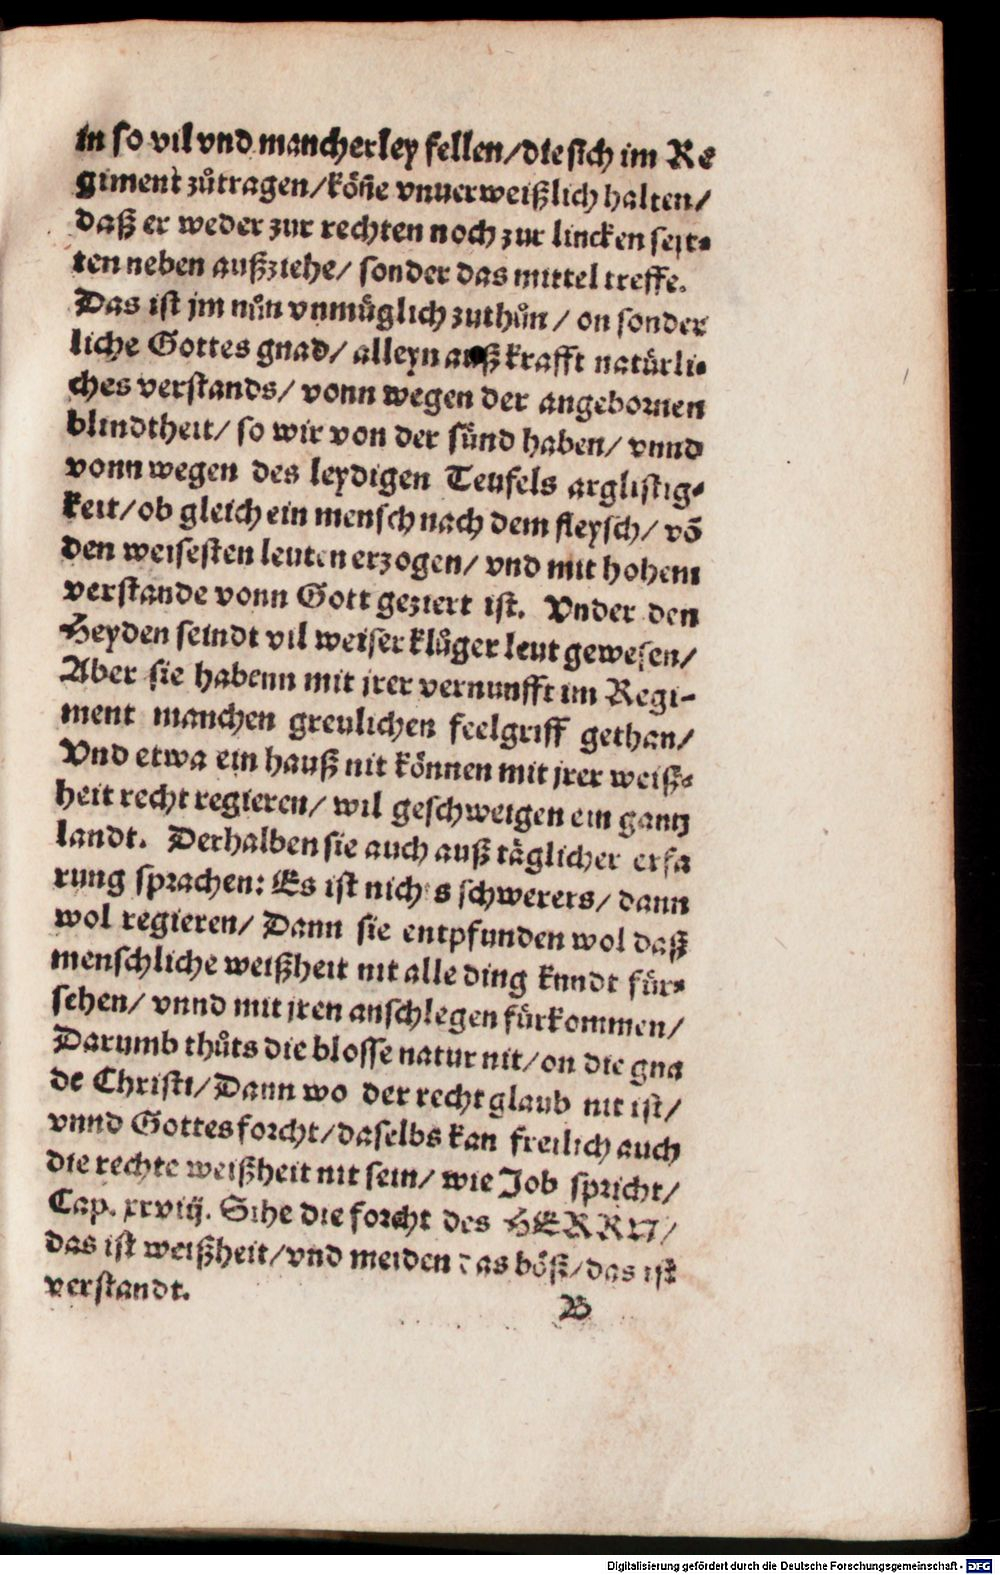 in so vil vnd mancherley fellen/die sich im Re
giment zůtragen/köñe vnuerweißlich halten/
daß er weder zur rechten noch zur lincken seyt⸗
ten neben außziehe/ sonder das mittel treffe.
Das ist jm nůn vnmüglich zuthůn/ on sonder
liche Gottes gnad/ alleyn auß krafft natürli⸗
ches verstands/ vonn wegen der angebornen
blindtheit/ so wir von der sünd haben/ vnnd
vonn wegen des leydigen Teufels arglistig⸗
keit/ob gleich ein mensch nach dem fleysch/ võ
den weisesten leuten erzogen/ vnd mit hohem
verstande vonn Gott geziert ist. Vnder den
Heyden seindt vil weiser klůger leut gewesen/
Aber sie habenn mit jrer vernunfft im Regi-
ment manchen greulichen feelgriff gethan/
Vnd etwa ein hauß nit können mit jrer weiß⸗
heit recht regieren/ wil geschweigen ein gantz
landt. Derhalben sie auch auß täglicher erfa
rung sprachen: Es ist nichts schwerers/ dann
wol regieren/ Dann sie entpfunden wol daß
menschliche weißheit nit alle ding kundt für⸗
sehen/ vnnd mit jren anschlegen fürkommen/
Darumb thůts die blosse natur nit/on die gna
de Christi/Dann wo der recht glaub nit ist/
vnnd Gottes forcht/daselbs kan freilich auch
die rechte weißheit nit sein/ wie Job spricht/
Cap. xxviij. Sihe die forcht des HERRN/
das ist weißheit/vnd meiden das böß/das ist
verstandt.
B
Digitalisierung gefördert durch die Deutsche Forschungsgemeinschaft - DFG